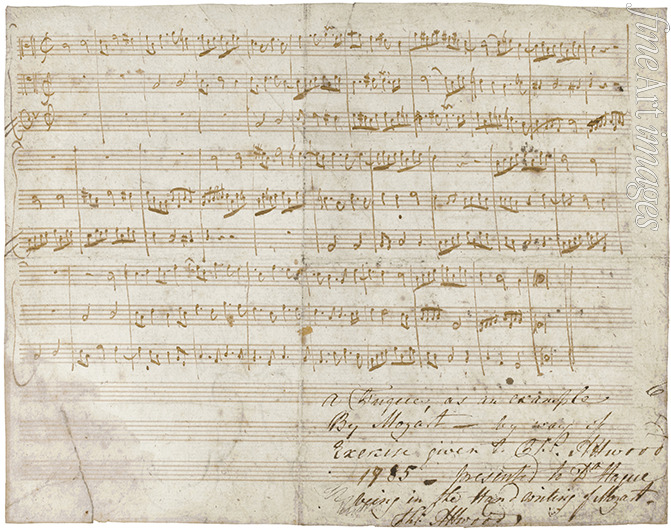 a Fugue, as an example
By Mozart — by way of
Exercise given to Thos. Attwood
1785 — presented to Dr Hague
being in the Hand writing of Mozart.
Thos. Attwood
fineArtimages